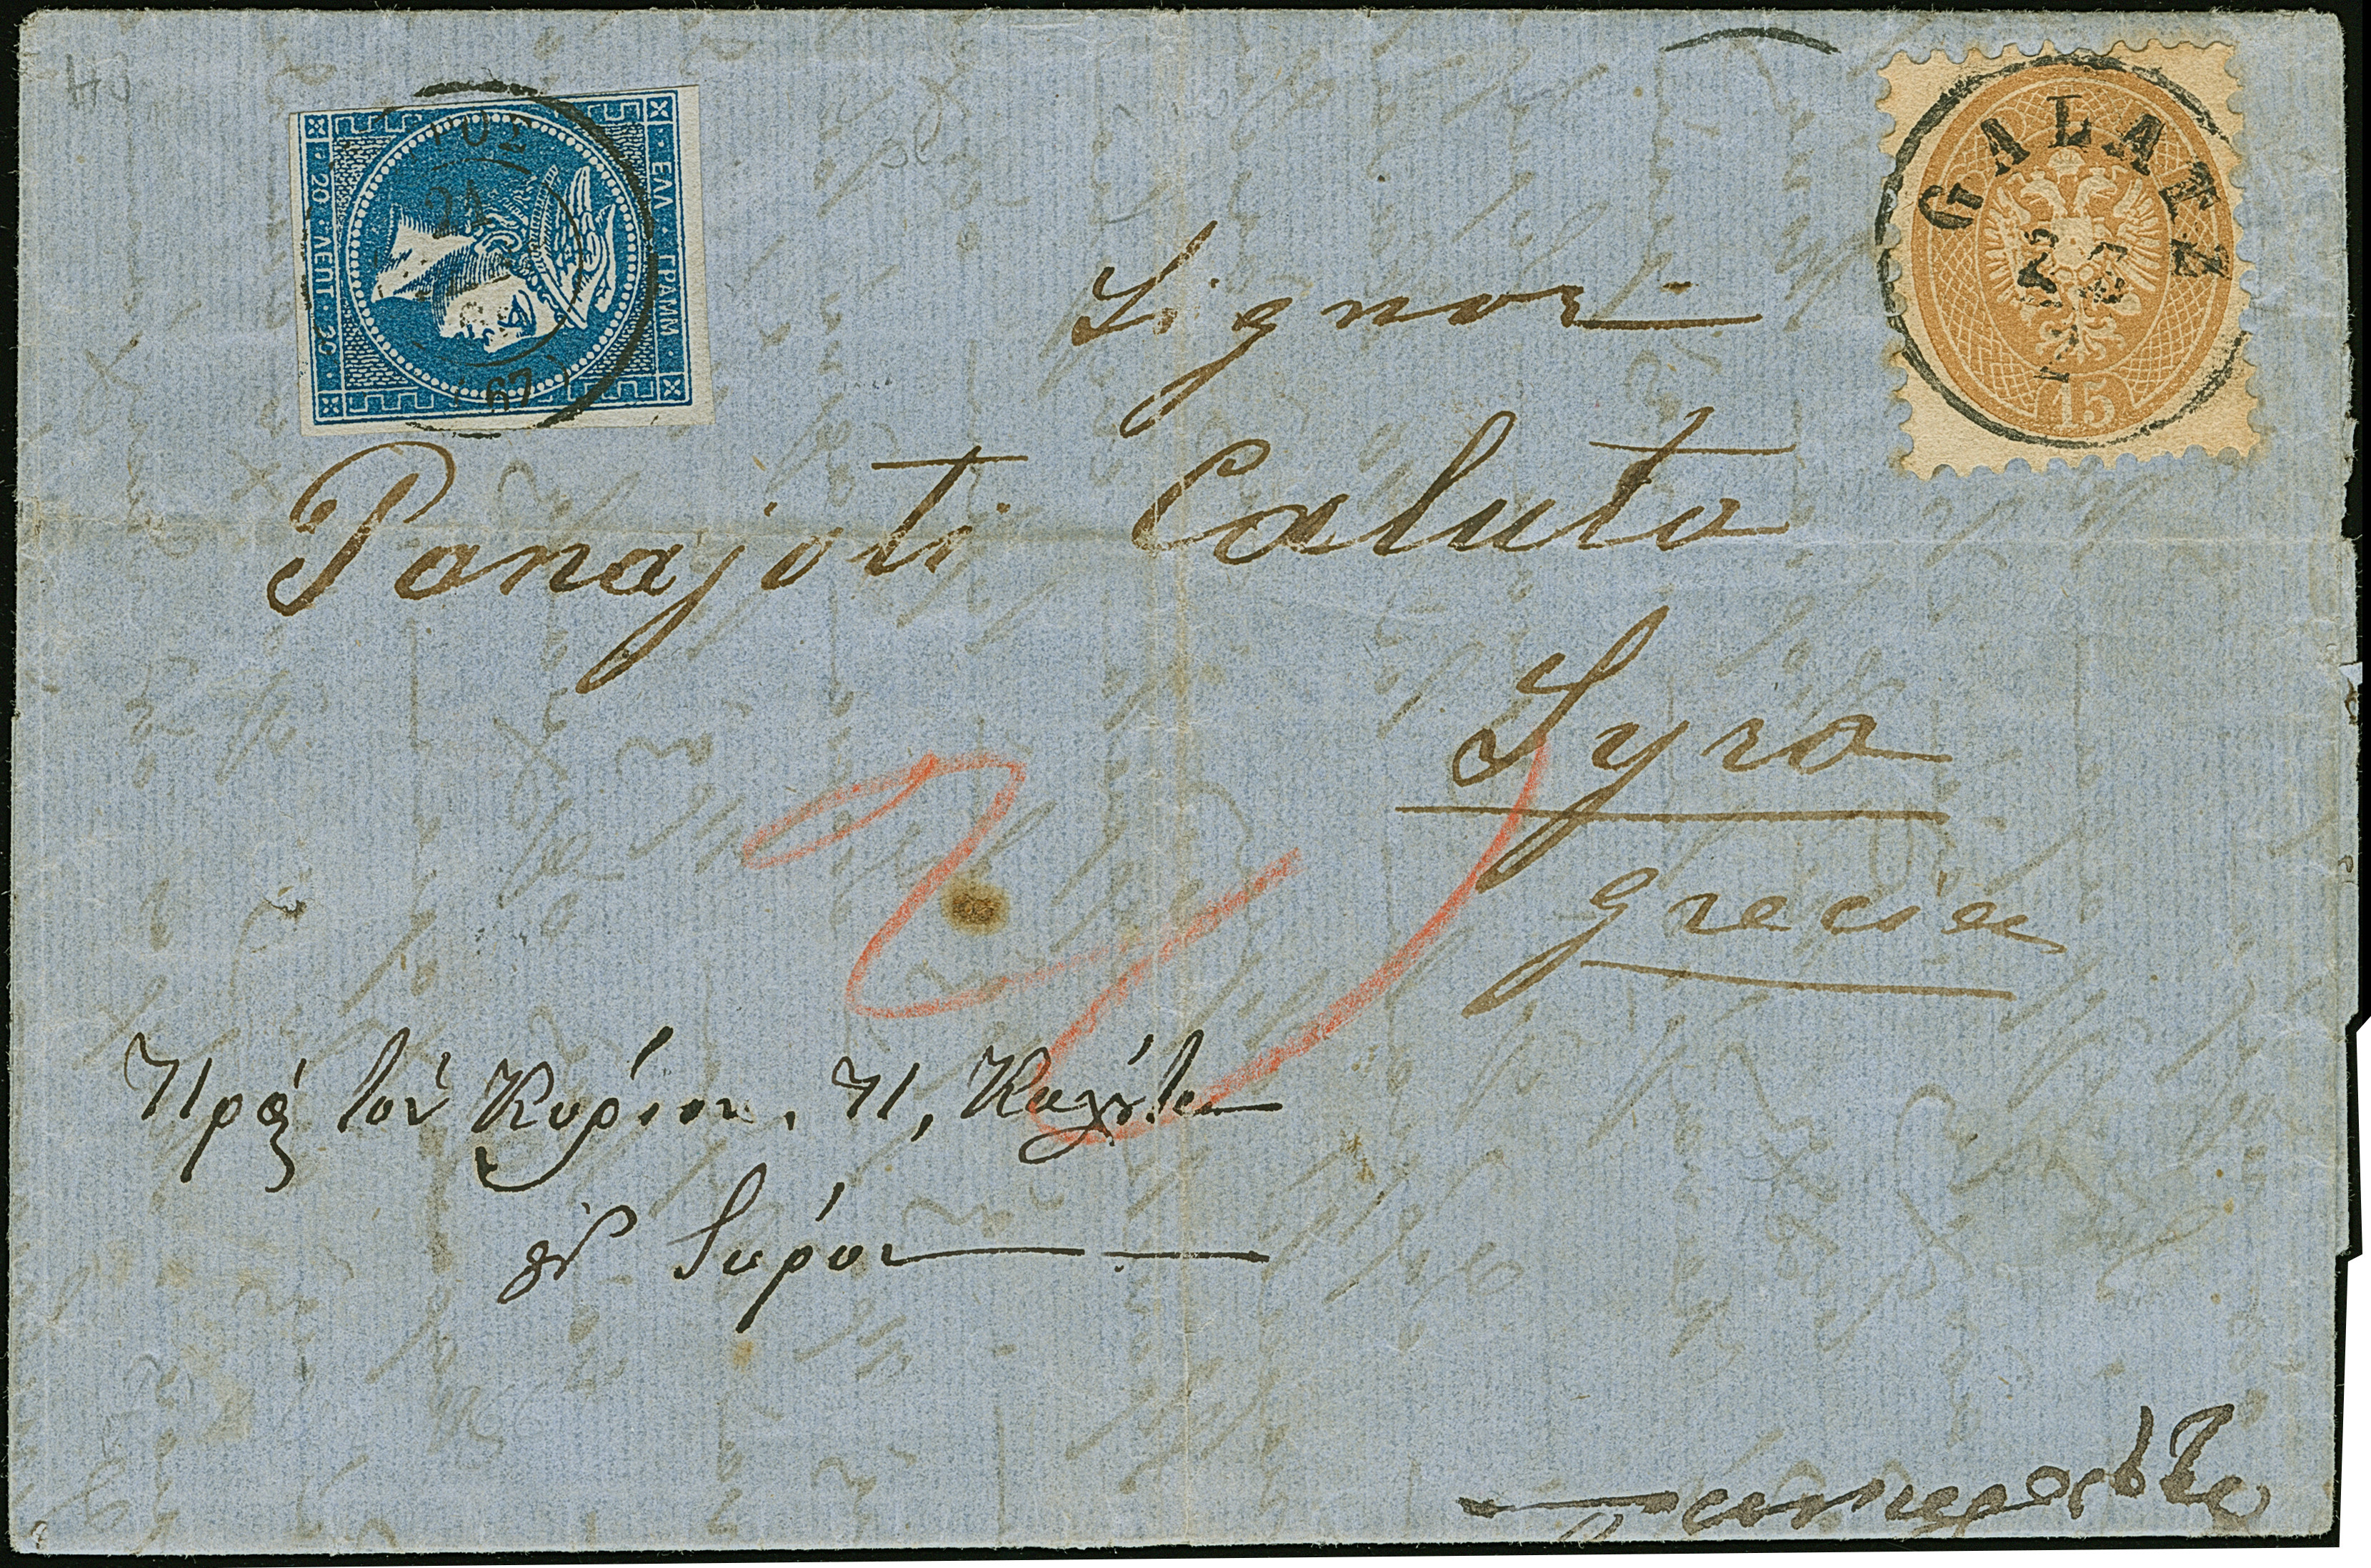 ΕΛΛ · ΓΡΑΜΜ ·
20 · ΛΕΠΤ · 20
21
67
GALATZ
15
Signor
Panajoti Caluta
Syra
Grecia
Πρὸς τὸν Κύριον, Π, Καλούτα
Σύρον